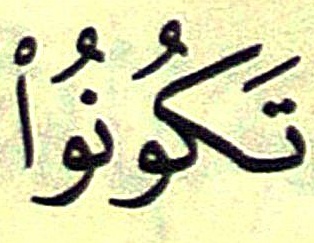 تَكُونُواْ